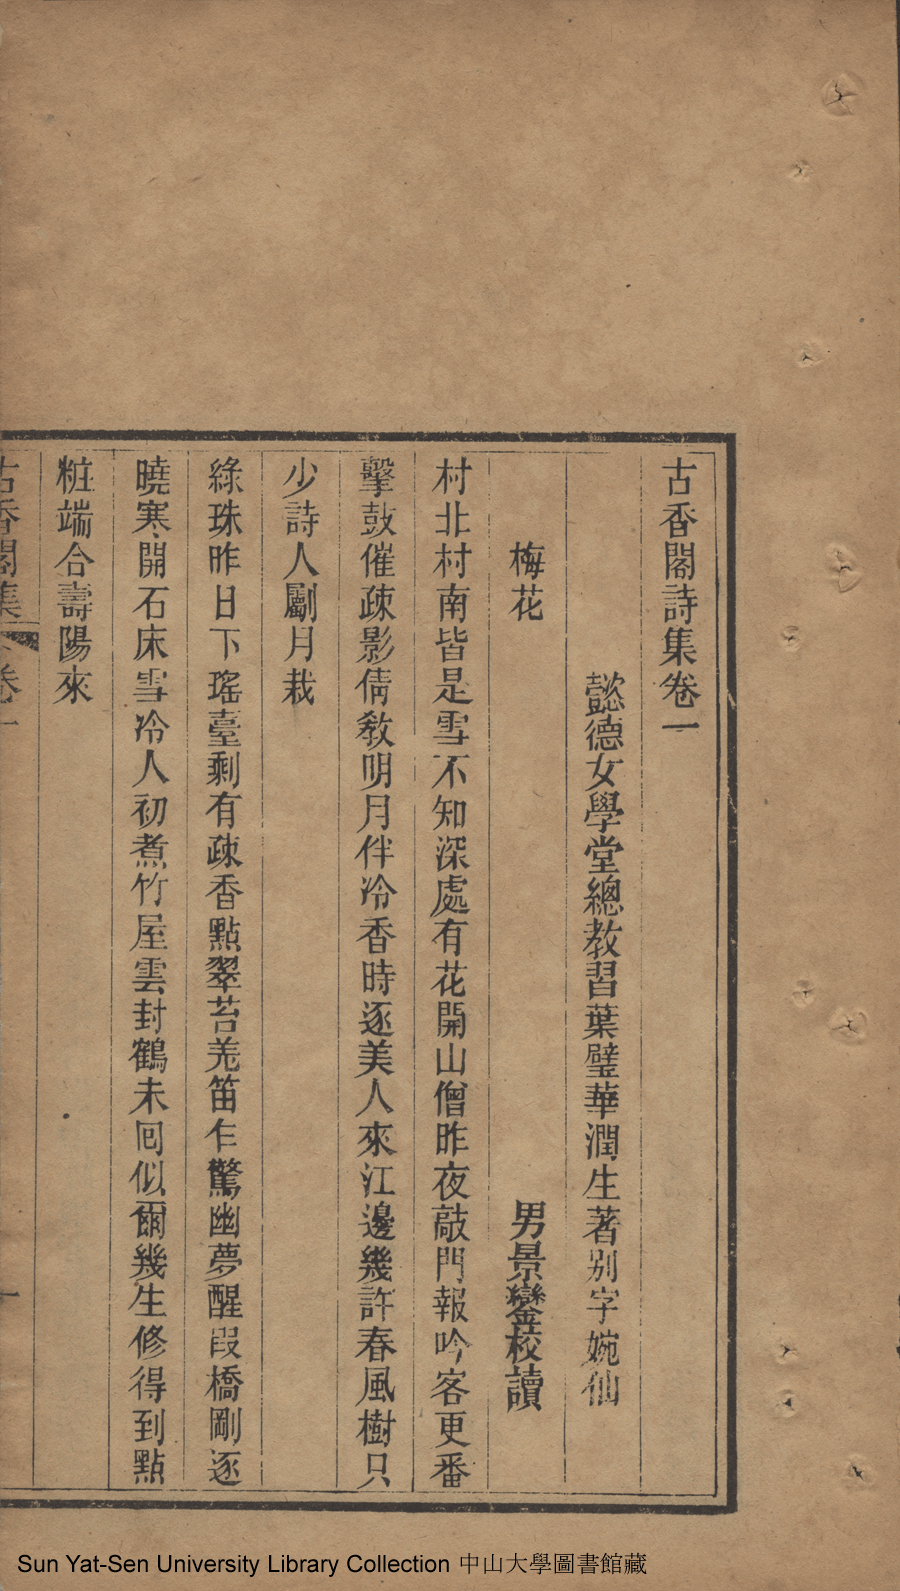 古香閣詩集卷一
懿德女學堂總教習葉璧華潤生著別字婉仙
梅花
男景鑾校讀
村北村南皆是雪不知深處有花開山僧昨夜敲門報吟客更番
擊鼓催疎影倩敎明月伴冷香時逐美人來江邊幾許春風樹只
少詩人劚月栽
綠珠昨日下瑤臺剩有疎香點翠苔羗笛乍驚幽夢醒段橋剛逐
曉寒開石床雪冷人初煮竹屋雲封鶴未囘似爾幾生修得到點
粧端合壽陽來
古香閣集 卷一 一
Sun Yat-Sen University Library Collection 中山大學圖書館藏